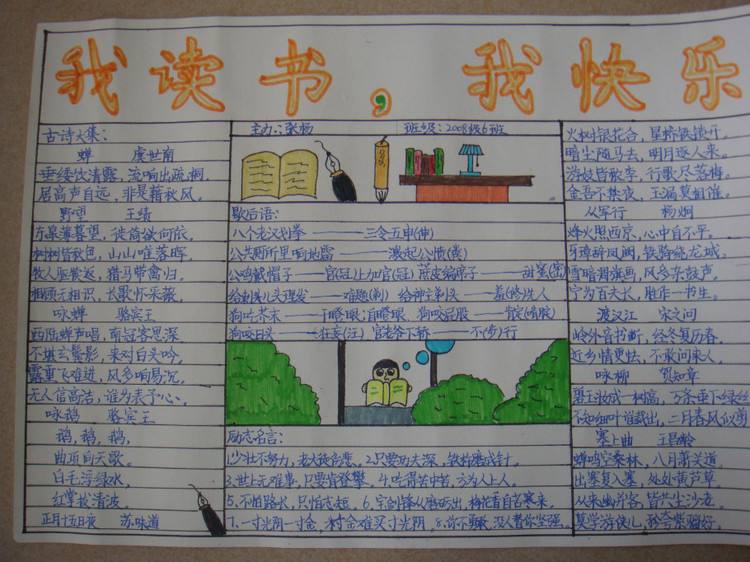 我读书，我快乐
古诗大集：
蝉 虞世南
垂緌饮清露，流响出疏桐。
居高声自远，非是藉秋风。
野望 王绩
东皋薄暮望，徙倚欲何依。
树树皆秋色，山山唯落晖。
牧人驱犊返，猎马带禽归。
相顾无相识，长歌怀采薇。
咏蝉 骆宾王
西陆蝉声唱，南冠客思深
不堪玄鬓影，来对白头吟。
露重飞难进，风多响易沉。
无人信高洁，谁为表予心。
咏鹅 骆宾王
鹅，鹅，鹅，
曲项向天歌。
白毛浮绿水，
红掌拨清波。
正月十五日夜 苏味道
主办：张杨 班级：2008级6班
歇后语：
八个老汉划拳————三令五申(伸)
公共厕所里响地雷————激起公愤(粪)
公鸡戴帽子——官(冠)上加官(冠)
给剃头儿头理发——难题(剃)
狗咬日头——狂妄(汪) 官老爷下轿——不(步)行
励志名言：
1.少壮不努力，老大徒伤悲。2.只要功夫深，铁杵磨成针。
3.世上无难事，只要肯登攀。4.吃得苦中苦，方为人上人。
5.不怕路长，只怕志短。6.宝剑锋从磨砺出，梅花香自苦寒来。
7.一寸光阴一寸金，寸金难买寸光阴。8.你不勇敢，没人替你坚强。
火树银花合，星桥铁锁开。
暗尘随马去，明月逐人来。
游妓皆秾李，行歌尽落梅。
金吾不禁夜，玉漏莫相催。
从军行 杨炯
烽火照西京，心中自不平。
牙璋辞凤阙，铁骑绕龙城。
雪暗凋旗画，风多杂鼓声。
宁为百夫长，胜作一书生。
渡汉江 宋之问
岭外音书断，经冬复历春。
近乡情更怯，不敢问来人。
咏柳 贺知章
碧玉妆成一树高，万条垂下绿丝
不知细叶谁裁出，二月春风似剪
塞上曲 王昌龄
蝉鸣空桑林，八月萧关道。
出塞复入塞，处处黄芦草。
从来幽并客，皆共尘沙老。
莫学游侠儿，矜夸紫骝好。